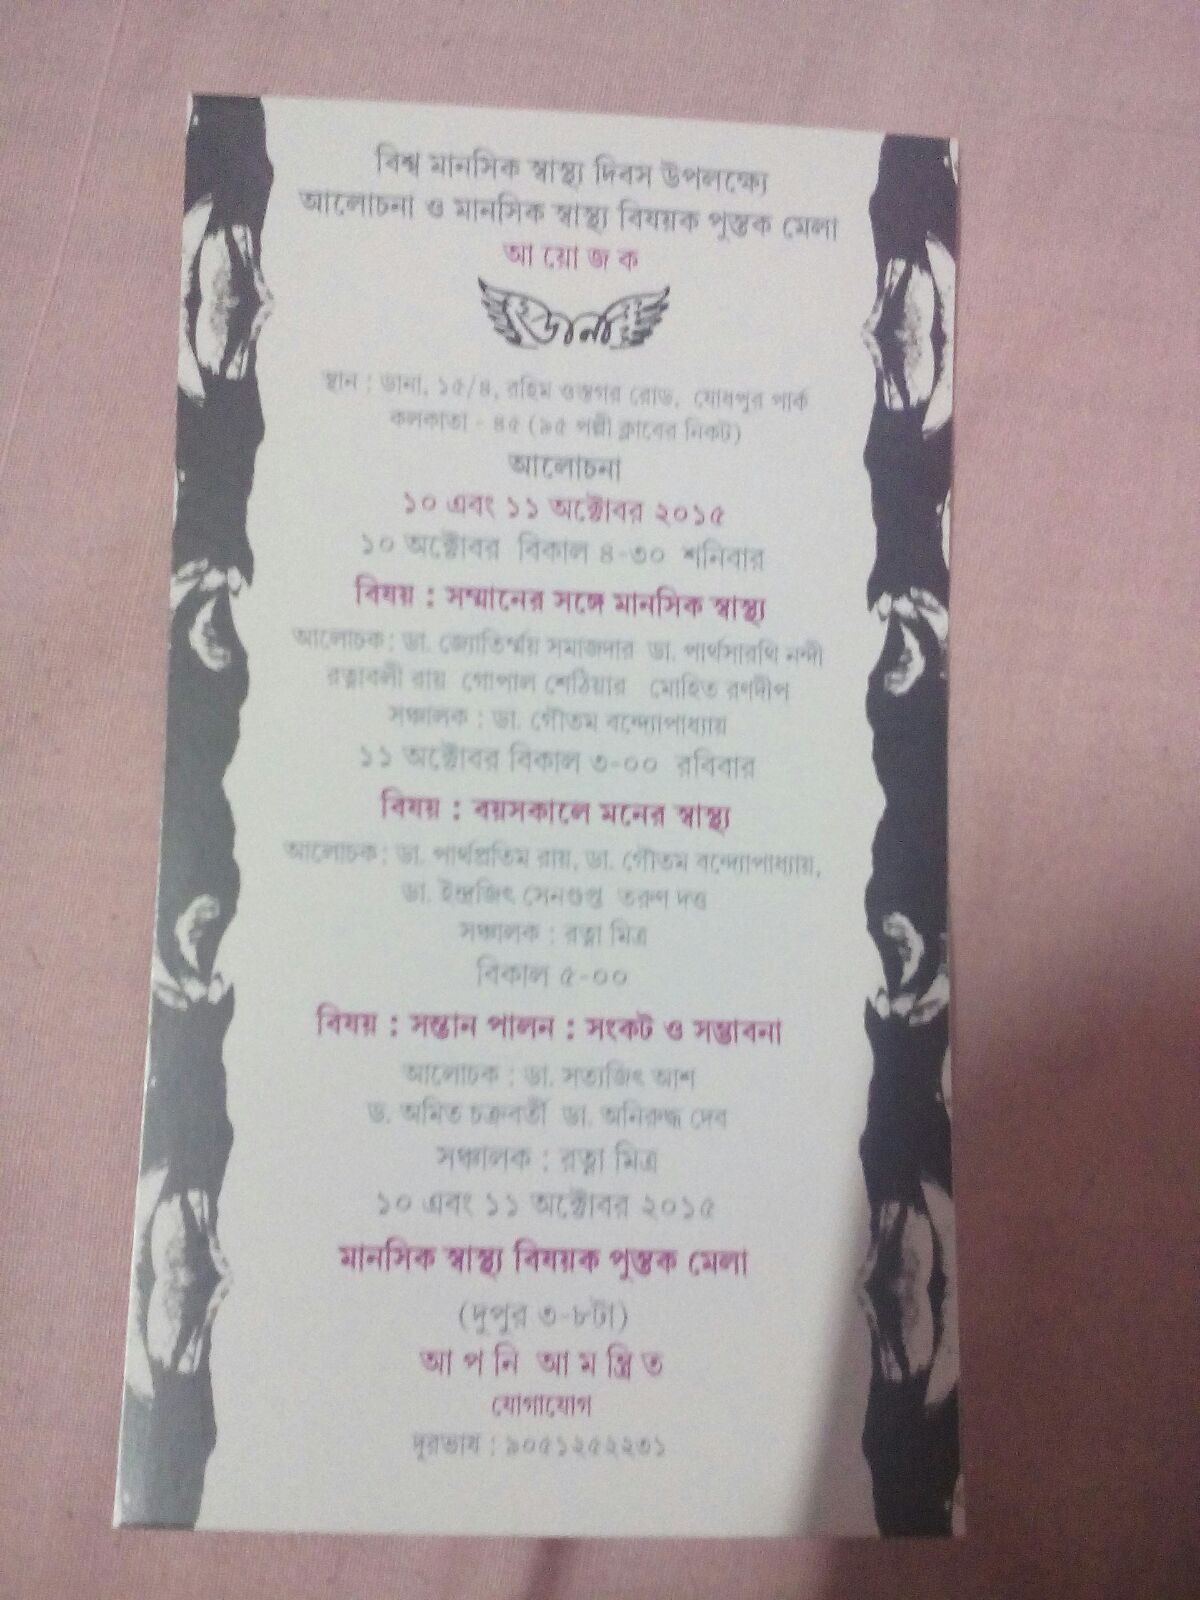 বিশ্ব মানসিক স্বাস্থ্য দিবস উপলক্ষ্যে
আলোচনা ও মানসিক স্বাস্থ্য বিষয়ক পুস্তক মেলা
আ য়ো জ ক
ডানা
স্থান : ডানা, ১৫/৪, রহিম ওস্তাগর রোড, যোধপুর পার্ক
কলকাতা - ৪৫ (৯৫ পল্লী ক্লাবের নিকট)
আলোচনা
১০ এবং ১১ অক্টোবর ২০১৫
১০ অক্টোবর বিকাল ৪-৩০ শনিবার
বিষয় : সম্মানের সঙ্গে মানসিক স্বাস্থ্য
আলোচক : ডা. জ্যোতির্ময় সমাজদার ডা. পার্থসারথি নন্দী
রত্নাবলী রায় গোপাল শেঠিয়ার মোহিত রণদীপ
সঞ্চালক : ডা. গৌতম বন্দ্যোপাধ্যায়
১১ অক্টোবর বিকাল ৩-০০ রবিবার
বিষয় : বয়সকালে মনের স্বাস্থ্য
আলোচক : ডা. পার্থপ্রতিম রায়, ডা. গৌতম বন্দ্যোপাধ্যায়,
ডা. ইন্দ্রজিৎ সেনগুপ্ত তরুণ দত্ত
সঞ্চালক : রত্না মিত্র
বিকাল ৫-০০
বিষয় : সন্তান পালন : সংকট ও সম্ভাবনা
আলোচক : ডা. সত্যজিৎ আশ
ড. অমিত চক্রবর্তী ডা. অনিরুদ্ধ দেব
সঞ্চালক : রত্না মিত্র
১০ এবং ১১ অক্টোবর ২০১৫
মানসিক স্বাস্থ্য বিষয়ক পুস্তক মেলা
(দুপুর ৩-৮টা)
আ প নি আ ম ন্ত্রি ত
যোগাযোগ
দূরভাষ : ৯০৫১২৫২২৩১